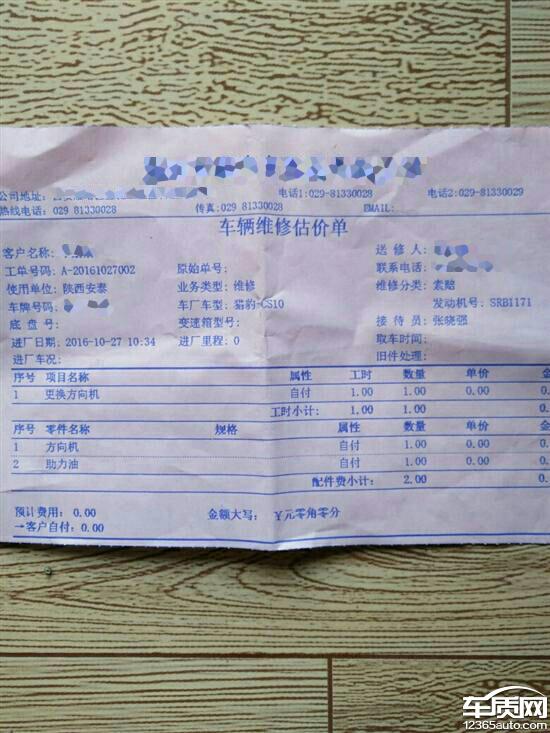 公司地址: 电话1:029-81330028 电话2:029-81330029
热线电话: 029 81330028 传真:029 81330028 EMAIL:
车辆维修估价单
客户名称: 送修人:
工单号码: A-20161027002 原始单号: 联系电话:
使用单位: 陕西安泰 业务类型: 维修 维修分类: 索赔
车牌号码: 车厂车型: 猎豹-CS10 发动机号: SRB1171
底盘号: 变速箱型号: 接待员: 张晓强
进厂日期: 2016-10-27 10:34 进厂里程: 0 取车时间:
进厂车况: 旧件处理:
序号 项目名称 属性 工时 数量 单价 金
1 更换方向机 自付 1.00 1.00 0.00 0.
工时小计: 1.00 1.00 0.
序号 零件名称 规格 属性 数量 单价 金
1 方向机 自付 1.00 0.00 0.
2 助力油 自付 1.00 0.00 0.
配件费小计: 2.00 0.
预计费用: 0.00 金额大写: ¥元零角零分
→客户自付: 0.00
车质网
12365auto.com